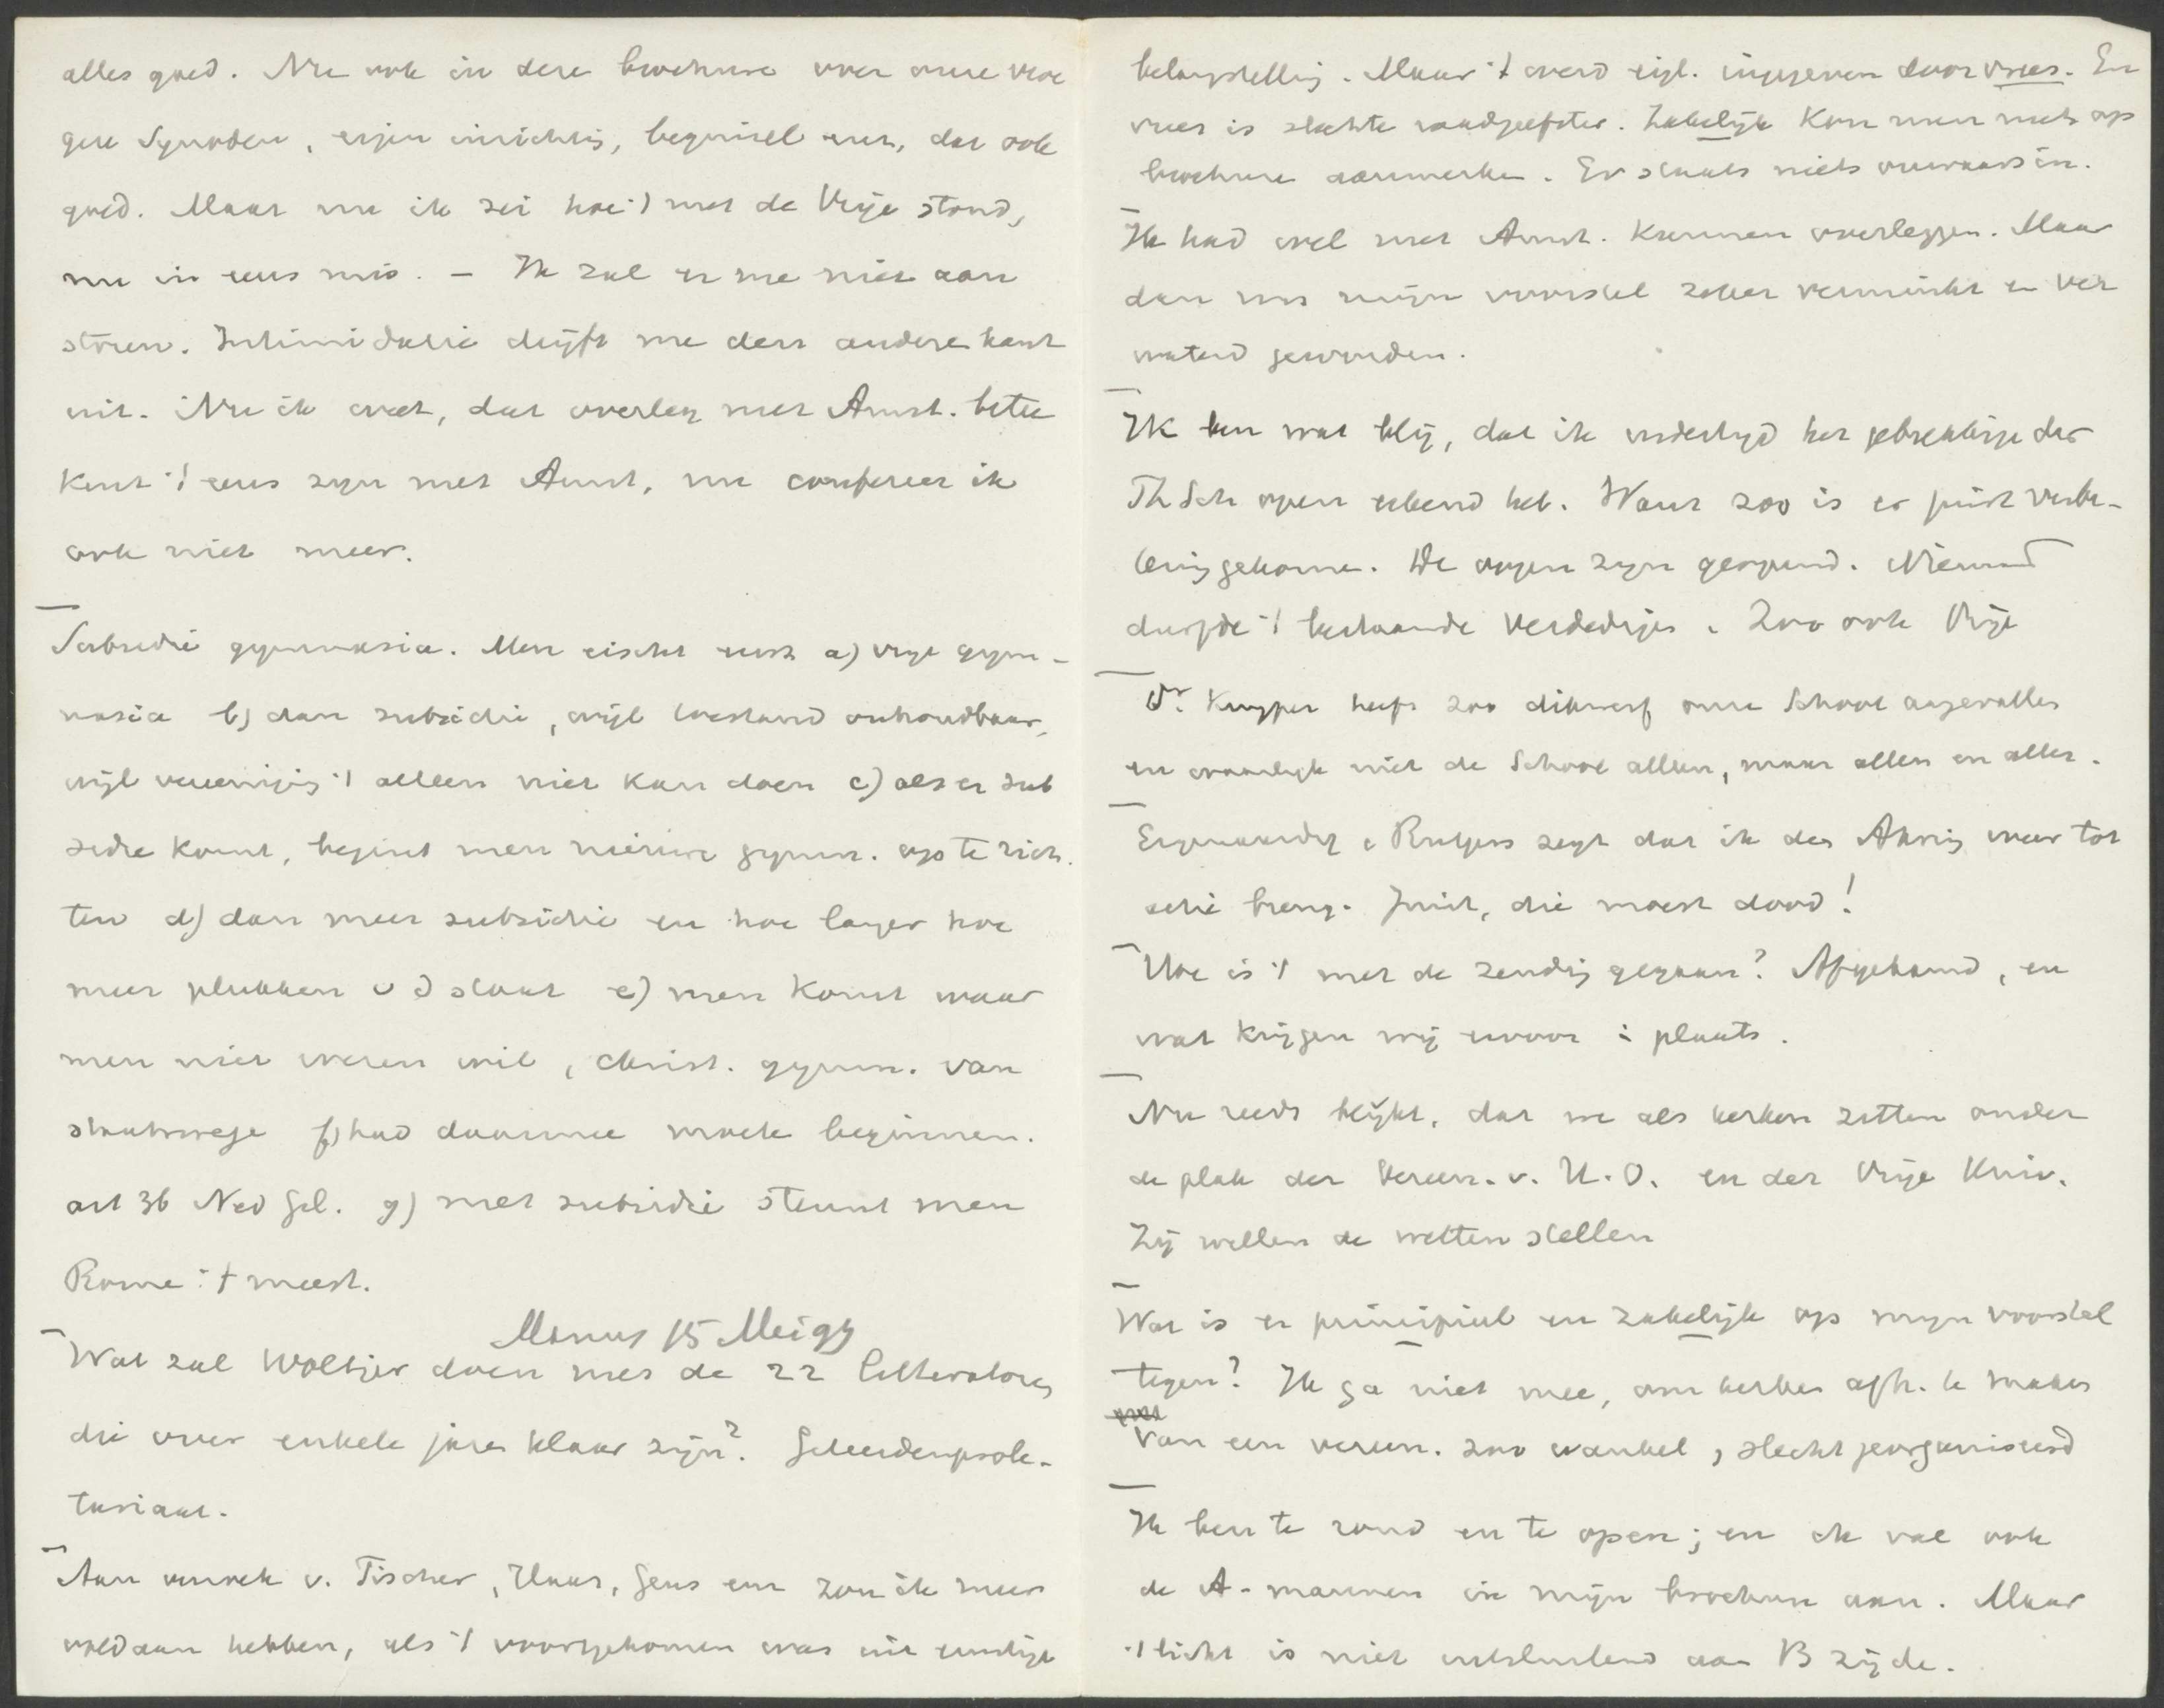 alles goed. Nu ook in deze brochure over onze vroe
gere Synoden, eigen inrichting, beginsel enz, dat ook
goed. Maar nu ik zei hoe 't met de Vrije stond,
nu in eens mis. – Ik zal er me niet aan
storen. Intimidatie drijft me den anderen kant
uit. Nu ik weet, dat overleg met Amst. betee
kent 't eens zijn met Amst, nu confereer ik
ook niet meer.
Subsidie gymnasia. Men eischt eerst a) vrije gym-
nasia b) dan subsidie, wijl toestand onhoudbaar,
wijl vereeniging 't alleen niet kan doen c) als er sub
sidie komt, begint men nieuwe gymn. op te rich.
ten d) dan meer subsidie en hoe langer hoe
meer plukken v d staat e) men komt waar
men niet wezen wil, christ. gymn. van
staatswege f) had daarmee moeten beginnen.
art 36 Ned Gel. g) met subsidie steunt men
Rome 't meest.
Manus 15 Mei 99
Wat zal Woltjer doen met de 22 litteratoren
die over enkele jaren klaar zijn? Geleerdenprole-
tariaat.
Aan verzoek v. Fischer, Haar, Gens enz zou ik meer
voldaan hebben, als 't voortgekomen was uit ernstige
belangstelling. Maar 't werd eigl. ingegeven door vrees. En
vrees is slechte raadgeefster. Zakelijk kan men niets op
brochure aanmerken. Er staat niets onwaars in.
Ik had wel met Amst. kunnen overleggen. Maar
dan was mijn voorstel zeker verminkt en ver
waterd geworden.
Ik ben wat blij, dat ik indertijd het gebrekkige der
Th Sch open erkend heb. Want zoo is er juist verbe-
tering gekomen. De oogen zijn geopend. Niemand
durfde 't bestaande verdedigen. Zoo ook Vrije
Dr. Kuyper heeft zoo dikwerf onze School aangevallen
en waarlijk niet de School alleen, maar allen en alles.
Eigenaardig: Rutgers zegt dat ik der Afscheiding weer tot
actie breng. Juist, die moest dood!
Hoe is 't met de zending gegaan? Afgekamd, en
wat krijgen wij ervoor i plaats.
Nu reeds blijkt, dat we als kerken zitten onder
de plak der Vereen. v. H. O. en der Vrije Univ.
Zij willen de wetten stellen
Wat is er principieel en zakelijk op mijn voorstel
tegen? Ik ga niet mee, om kerken afh. te maken
van een vereen. zoo wankel, slecht georganiseerd
Ik ben te rond en te open; en ik val ook
de A-mannen in mijn brochure aan. Maar
't licht is niet uitsluitend aan B zijde.